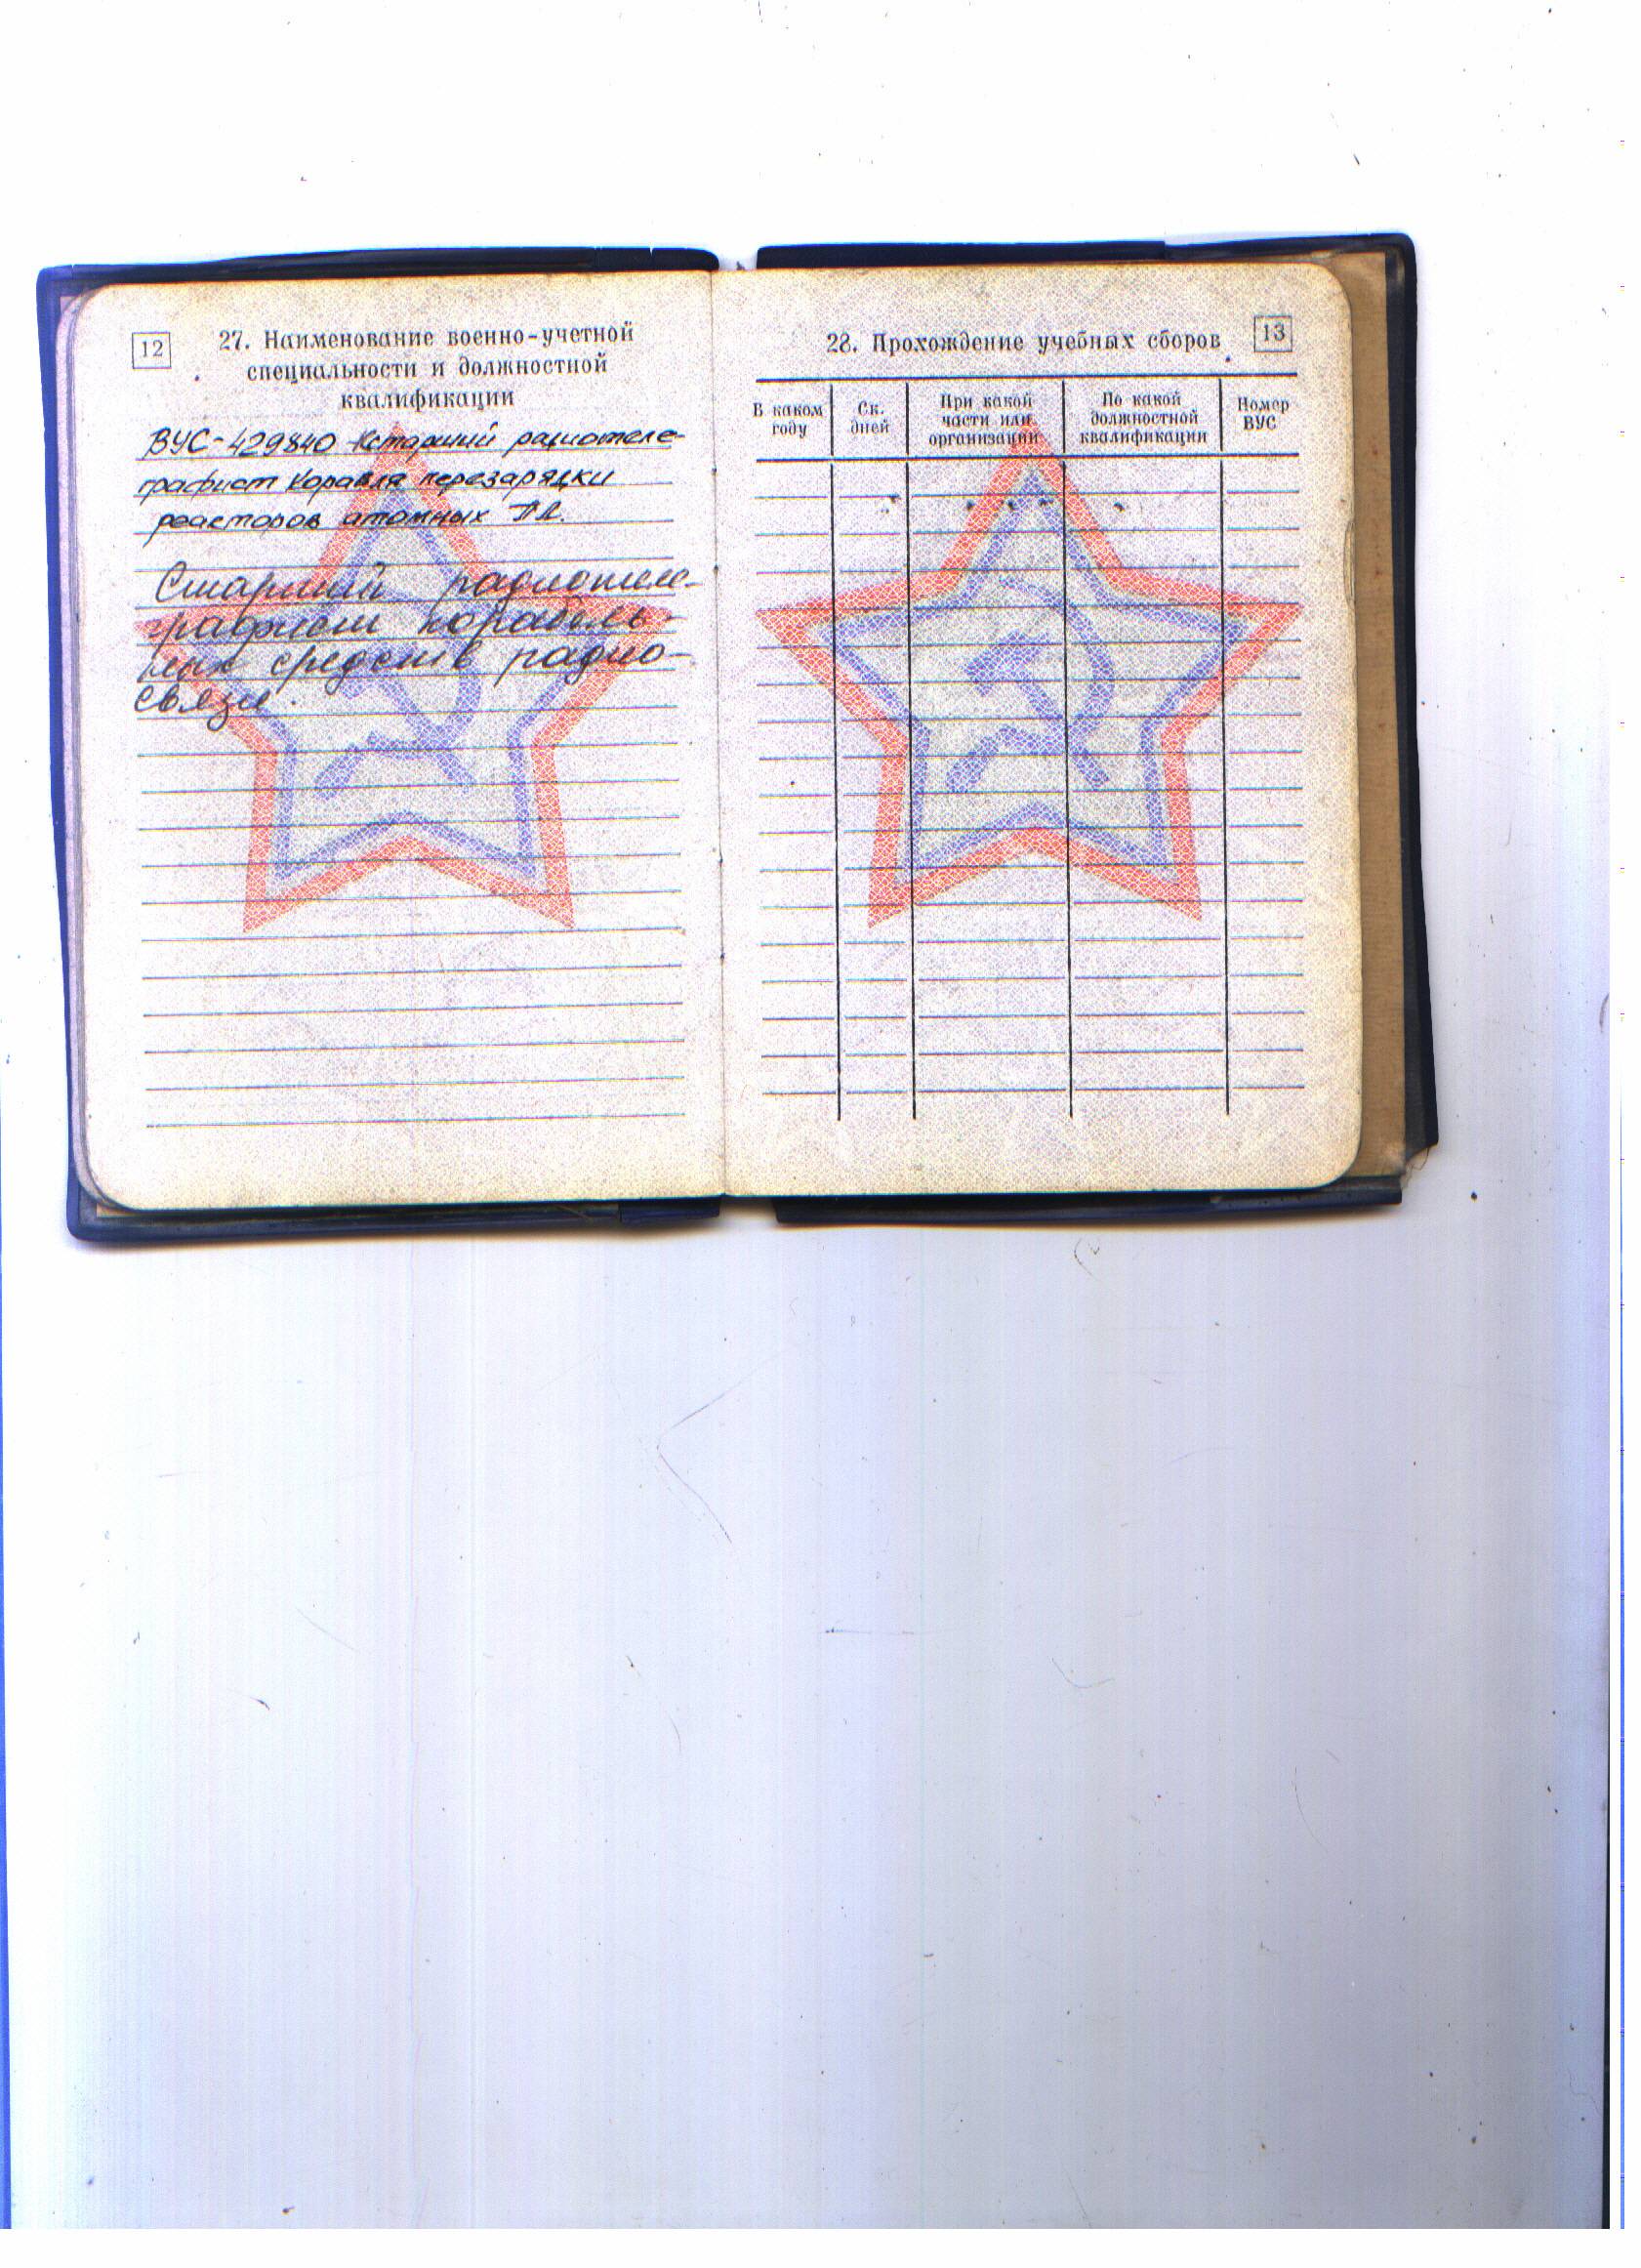 12
27. Наименование военно-учетной
специальности и должностной
квалификации
ВУС-429840 старший радиотеле-
графист корабля перезарядки
реакторов атомных ПЛ.
Старший радиотеле-
графист корабель-
ных средств радио-
связи.
28. Прохождение учебных сборов
13
В каком году
Ск. дней
При какой части или организации
По какой должностной квалификации
Номер ВУС